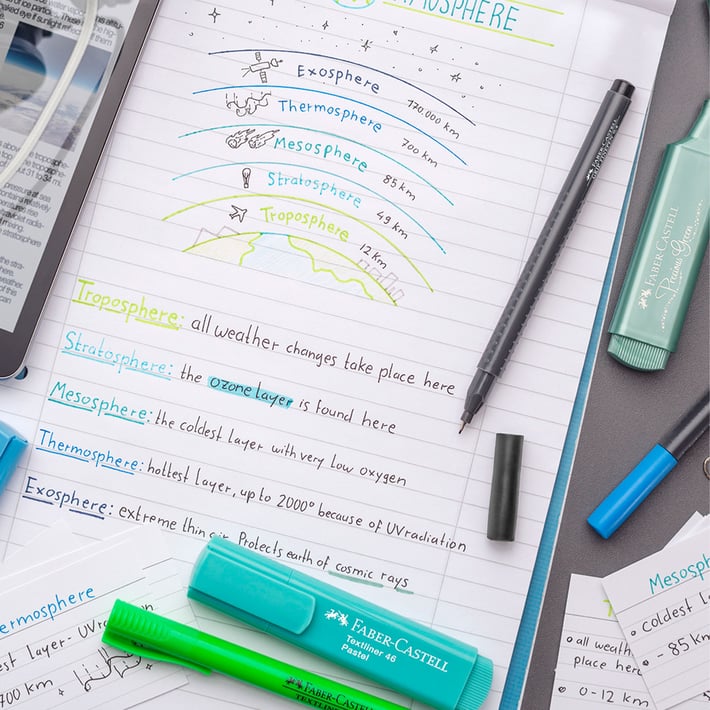 ATMOSPHERE
Exosphere 170.000 km
Thermosphere 700 km
Mesosphere 85 km
Stratosphere 49 km
Troposphere 12 km
Troposphere: all weather changes take place here
Stratosphere: the ozone layer is found here
Mesosphere: the coldest layer with very low oxygen
Thermosphere: hottest layer, up to 2000° because of UV radiation
Exosphere: extreme thin air. Protects earth of cosmic rays
FABER-CASTELL
Textliner 46
Pastel
FABER-CASTELL
FABER-CASTELL
GRIP FINEPEN
FABER-CASTELL
Precious Green
hermosphere
est layer - UV ra
700 km
all weath
place here
0-12 km
Mesosph
coldest l
- 85 km